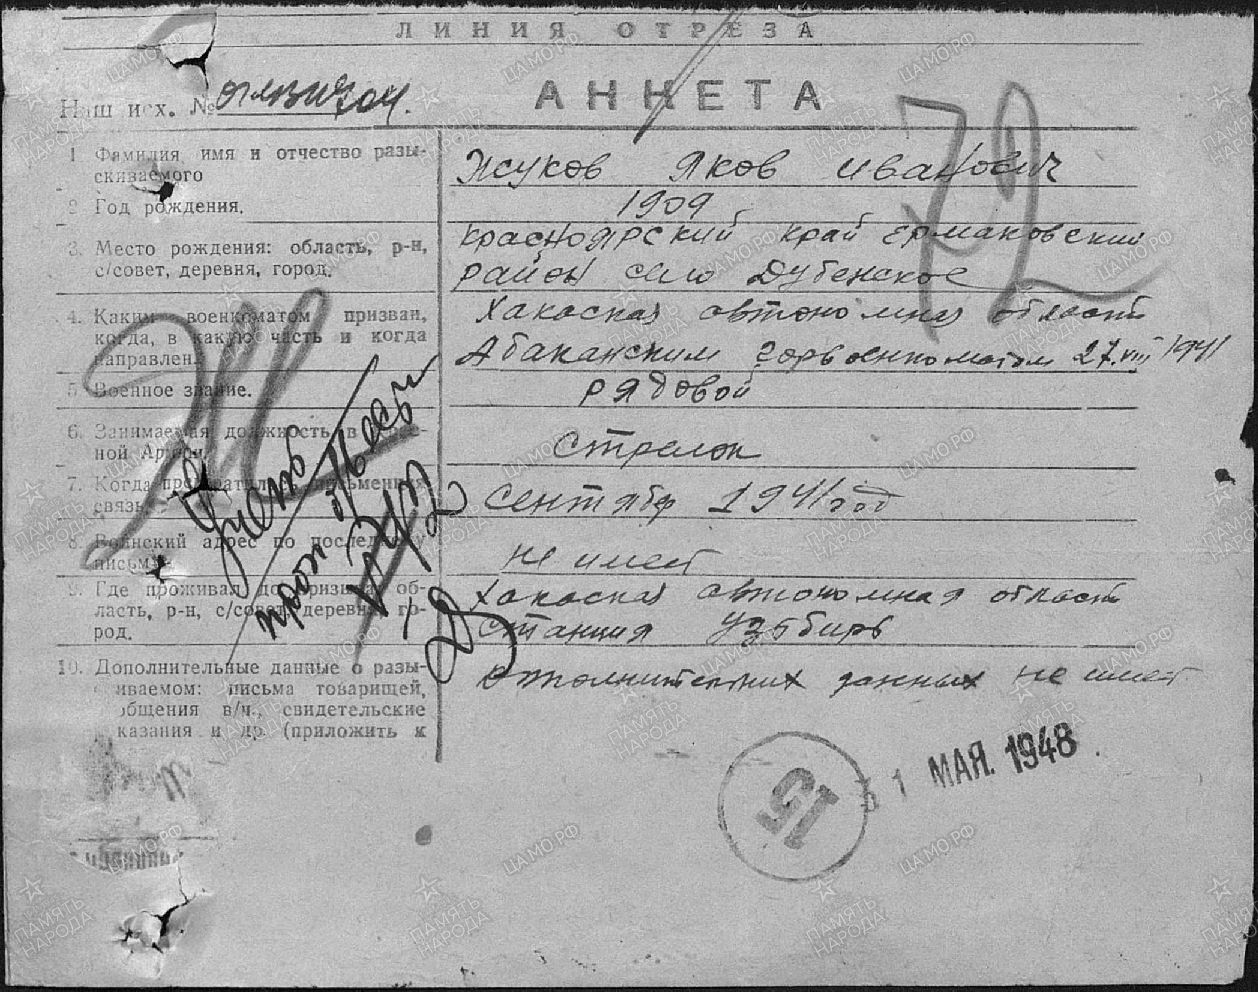 ЛИНИЯ ОТРЕЗА
Наш исх. №
АНКЕТА
72
1 Фамилия, имя и отчество разы-
скиваемого
Жуков Яков Иванович
2 Год рождения.
1909
3. Место рождения: область, р-н,
с/совет, деревня, город.
Красноярский край Ермаковский
район село Дубенское
4. Каким военкоматом призван,
когда, в какую часть и когда
направлен.
Хакаская автономная область
Абаканским горвоенкоматом 27.VIII 1941
5 Военное звание.
рядовой
6. Занимаемая должность в
ной Армии.
стрелок
7. Когда прекратилась письменная
связь.
Сентябр 1941 год
8. Воинский адрес по последнему
письму.
не имеет
9. Где проживал до призыва: об-
ласть, р-н, с/совет, деревня, го-
род.
Хакаская автономная область
Станция
10. Дополнительные данные о разы-
скиваемом: письма товарищей,
сообщения в/ч., свидетельские
показания и др. (приложить к
дополнительных данных не имеет
Ж
15
31 МАЯ. 1948
ПАМЯТЬ НАРОДА
ЦАМО.РФ